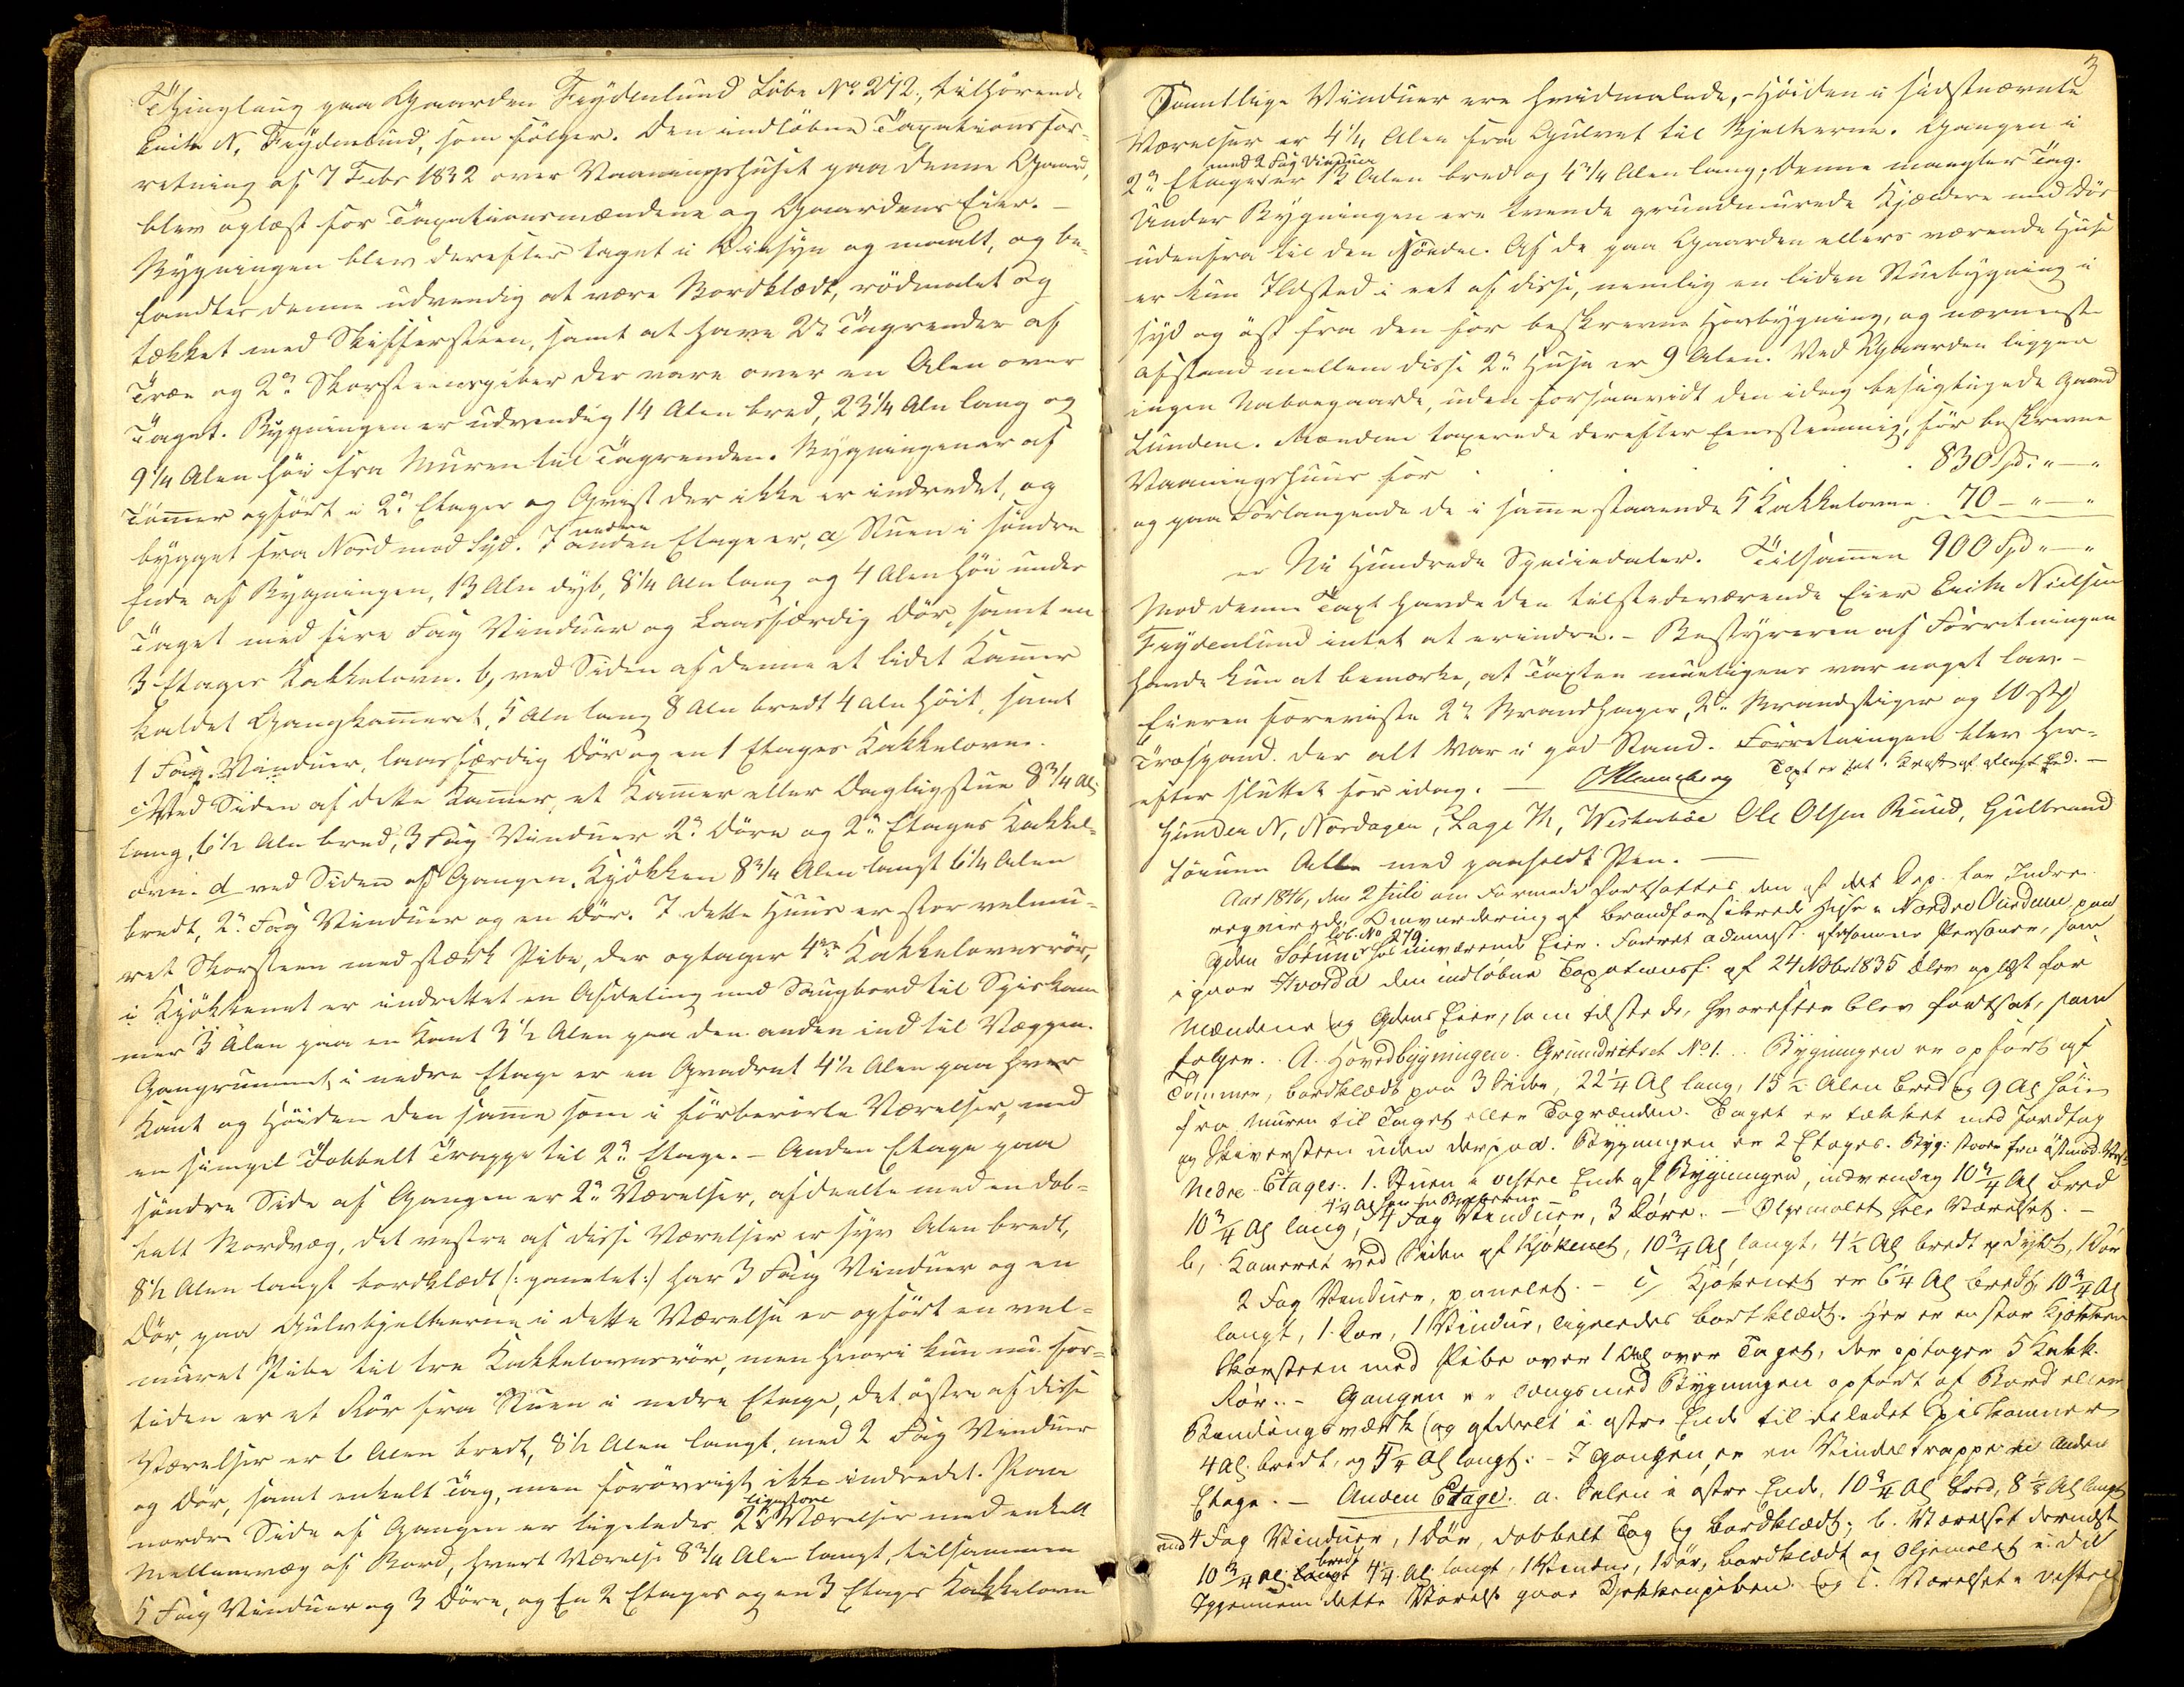 Thinglaug paa Gaarden Frydenlund Løbe No 242, tilhørende
Erik N. Frydenlund, som følger. Den indløbne Taxationsfor-
retning af 7 Febr 1832 over Vaaningshuset paa denne Gaard,
blev oplæst for Taxationsmændene og Gaardens Eier. -
Bygningen blev derefter taget i Øiesyn og maalt, og be-
fandtes denne udvendig at være Bordklædt, rødmalet og
tækket med Skiffersteen, samt at have 2de Tagrender af
Træ og 2de Skorsteenspiber der vare over en Alen over
Taget. Bygningen er udvendig 14 Alen bred, 23 1/4 Aln lang og
9 1/4 Alen høi fra Muren til Tagrenden. Bygningen er af
Tømer opført i 2de Etager og Qvist der ikke er indredet, og
bygget fra Nord mod Syd. I anden Etage er, a/ Stuen i søndre
nedre
Ende af Bygningen, 13 Aln dyb, 8 1/4 Aln lang og 4 Alen høi under
Taget med fire Fag Vinduer og laasfærdig Dør, samt en
3 Etages Kakkelovn. b, ved Siden af denne et lidet Kamer
kaldet Gangkameret, 5 Aln lang 8 Aln bredt 4 Aln høit, samt
1 Fag Vinduer, laasfærdig Dør og en 1 Etages Kakkelovn.
c Ved Siden af dette Kamer, et Kamer eller Dagligstue 8 3/4 Al:
lang, 6 1/2 Aln bred, 3 Fag Vinduer 2de Døre og 2de Etages Kakkel-
ovn. d ved Siden af Gangen, Kjøkken 8 3/4 Alen langt 6 1/4 Alen
bredt, 2de Fag Vinduer og en Dør. I dette Huus er stor velmu-
ret Skorsteen med stærk Pibe, der optager 4re Kakkelovnsrør,
i Kjøkkenet er indrettet en Afdeling med Saugbord til Spiskam
mer 3 Alen paa en Kant 3 1/2 Alen paa den anden ind til Væggen.
Gangrummet i nedre Etage er en Qvadrat 4 1/2 Alen paa hver
Kant og Høiden den same som i førberørte Værelser, med
en simpel Dobbelt Trappe til 2den Etage. - Anden Etage paa
søndre Side af Gangen er 2de Værelser, afdeelte med en dob-
belt Bordvæg, det vestre af disse Værelser er syv Alen bredt,
8 1/2 Alen langt bordklædt (: panelet :) har 3 Fag Vinduer og en
Dør, paa Gulvbjelkerne i dette Værelse er opført en vel-
muret Pibe til tre Kakkelovnsrør, men hvori kun nu for-
tiden er et Rør fra Stuen i nedre Etage, det østre af disse
Værelser er 6 Alen bredt, 8 1/2 Alen langt, med 2 Fag Vinduer
og Dør, samt enkelt Tag, men forøvrigt ikke indredet. Paa
nordre Side af Gangen er ligeledes 2de Værelser med enkelt
ligestore
Mellemvæg af Bord, hvert Værelse 8 3/4 Alen langt, tilsammen
5 Fag Vinduer og 3 Døre, og En 2 Etages og en 3 Etages Kakkelovn
3
Samtlige Vinduer ere hvidmalede, - Høiden i sidstnævnte
Værelser er 4 1/4 Alen fra Gulvet til Bjelkerne. Gangen i
2den Etage er 13 Alen bred og 4 3/4 Alen lang; denne mangler Tag.
med 2 Fag Vinduer
Under Bygningen ere tvende grundmurede Kjældere med Dør
udenfra til den Søndre. Af de paa Gaarden ellers værende Huse
er kun Ildsted i eet af disse, nemlig en liden Stuebygning i
syd og øst fra den før beskrevne Hovbygning, og nærmeste
Afstand mellem disse 2de Huse er 9 Alen. Ved Gaarden ligger
ingen Naboegaarde, uden forsaavidt den idag besigtigede Gaard
Lundene. Mændene taxerede derefter Eenstemmig, før beskrevne
Vaaningshuus for . . . 830 Spd: " — "
og paa Forlangende de i same staaende 5 Kakkelovne . 70 - " — "
er Ni Hundrede Speciedaler. Tilsamen 900 Spd " — "
Mod denne Taxt havde den tilstedeværende Eier Erik Nielsen
Frydenlund intet at erindre. - Bestyreren af Forretningen
havde kun at bemærke, at Taxten muligens var noget lav. -
Eieren foreviste 2de Brandhager, 2de Brandstiger og 10 Stk
Træspand. der alt var i god Stand. Forretningen blev her-
efter sluttet for idag. — Taxt er sat i Kraft af aflagt Eed. -
N. Nordagen, Lage Th. Westerbøe Ole Olsen Ruud, Gulbrand
Alle med paaholdt Pen. —
Aar 1846, den 2 Juli om Formid. fortsattes den af det Dep. for Indre
reqvirerede Omvurdering af brandforsikrede Huse i Nordre Aurdal, paa
Gden Løbe No 279 nuværende Eier. Forret administ. af samme Personer, som
igaar Hvorda den indløbne Taxationsf. af 24 Nbr 1835 blev oplæst for
Mændene og Gdens Eier, som tilstede, hvorefter blev fortsat, som
følger. A. Hovedbygningen. Grundridset No 1. Bygningen er opført af
Tømmer, bordklædt paa 3 Sider, 22 1/4 Al lang, 15 1/2 Alen bred og 9 Al høi
fra Muren til Taget eller Tagrænden. Taget er tækket med Jordtag
og Skiversteen uden derpaa. Bygningen er 2 Etages. Byg: staar fra Øst mod Vest
Nedre Etages. 1. Stuen i vestre Ende af Bygningen, indvendig 10 3/4 Al bred
10 3/4 Al lang, 4 Fag Vinduer, 3 Døre. - Oljemalet hele Værelset. -
b, Kameret ved Siden af Kjøkenet, 10 3/4 Al langt, 4 1/2 Al bredt, 1 Dør
2 Fag Vinduer, panelet. - c/ Kjøkenet er 6 1/4 Al bredt 10 3/4 Al
langt, 1 Dør, 1 Vindue, ligeledes bordklædt. Her er en stor Kjøkken
Skorsteen med Pibe over 1 Al over Taget, der optager 5 Kakk.
Rør. - Gangen er langsmed Bygningen opført af Bord eller
Bindingsværk og afdeelt i østre Ende til et lidet Spiskammer
4 Al. bredt, og 5 1/4 Al langt. - I Gangen er en Vindeltrappe til Anden
Etage. - Anden Etage. a. Salen i østre Ende, 10 3/4 Al bred, 8 1/2 Al langt
med 4 Fag Vinduer, 1 Dør, dobbelt Tag og bordklædt; b. Værelset dernæst
10 3/4 Al bredt 4 1/4 Al langt, 1 Vindue, 1 Dør, bordklædt og Oljemalet
Igjennem dette Værelse gaar Kjøkkenpiben. og c. Værelset i vestre